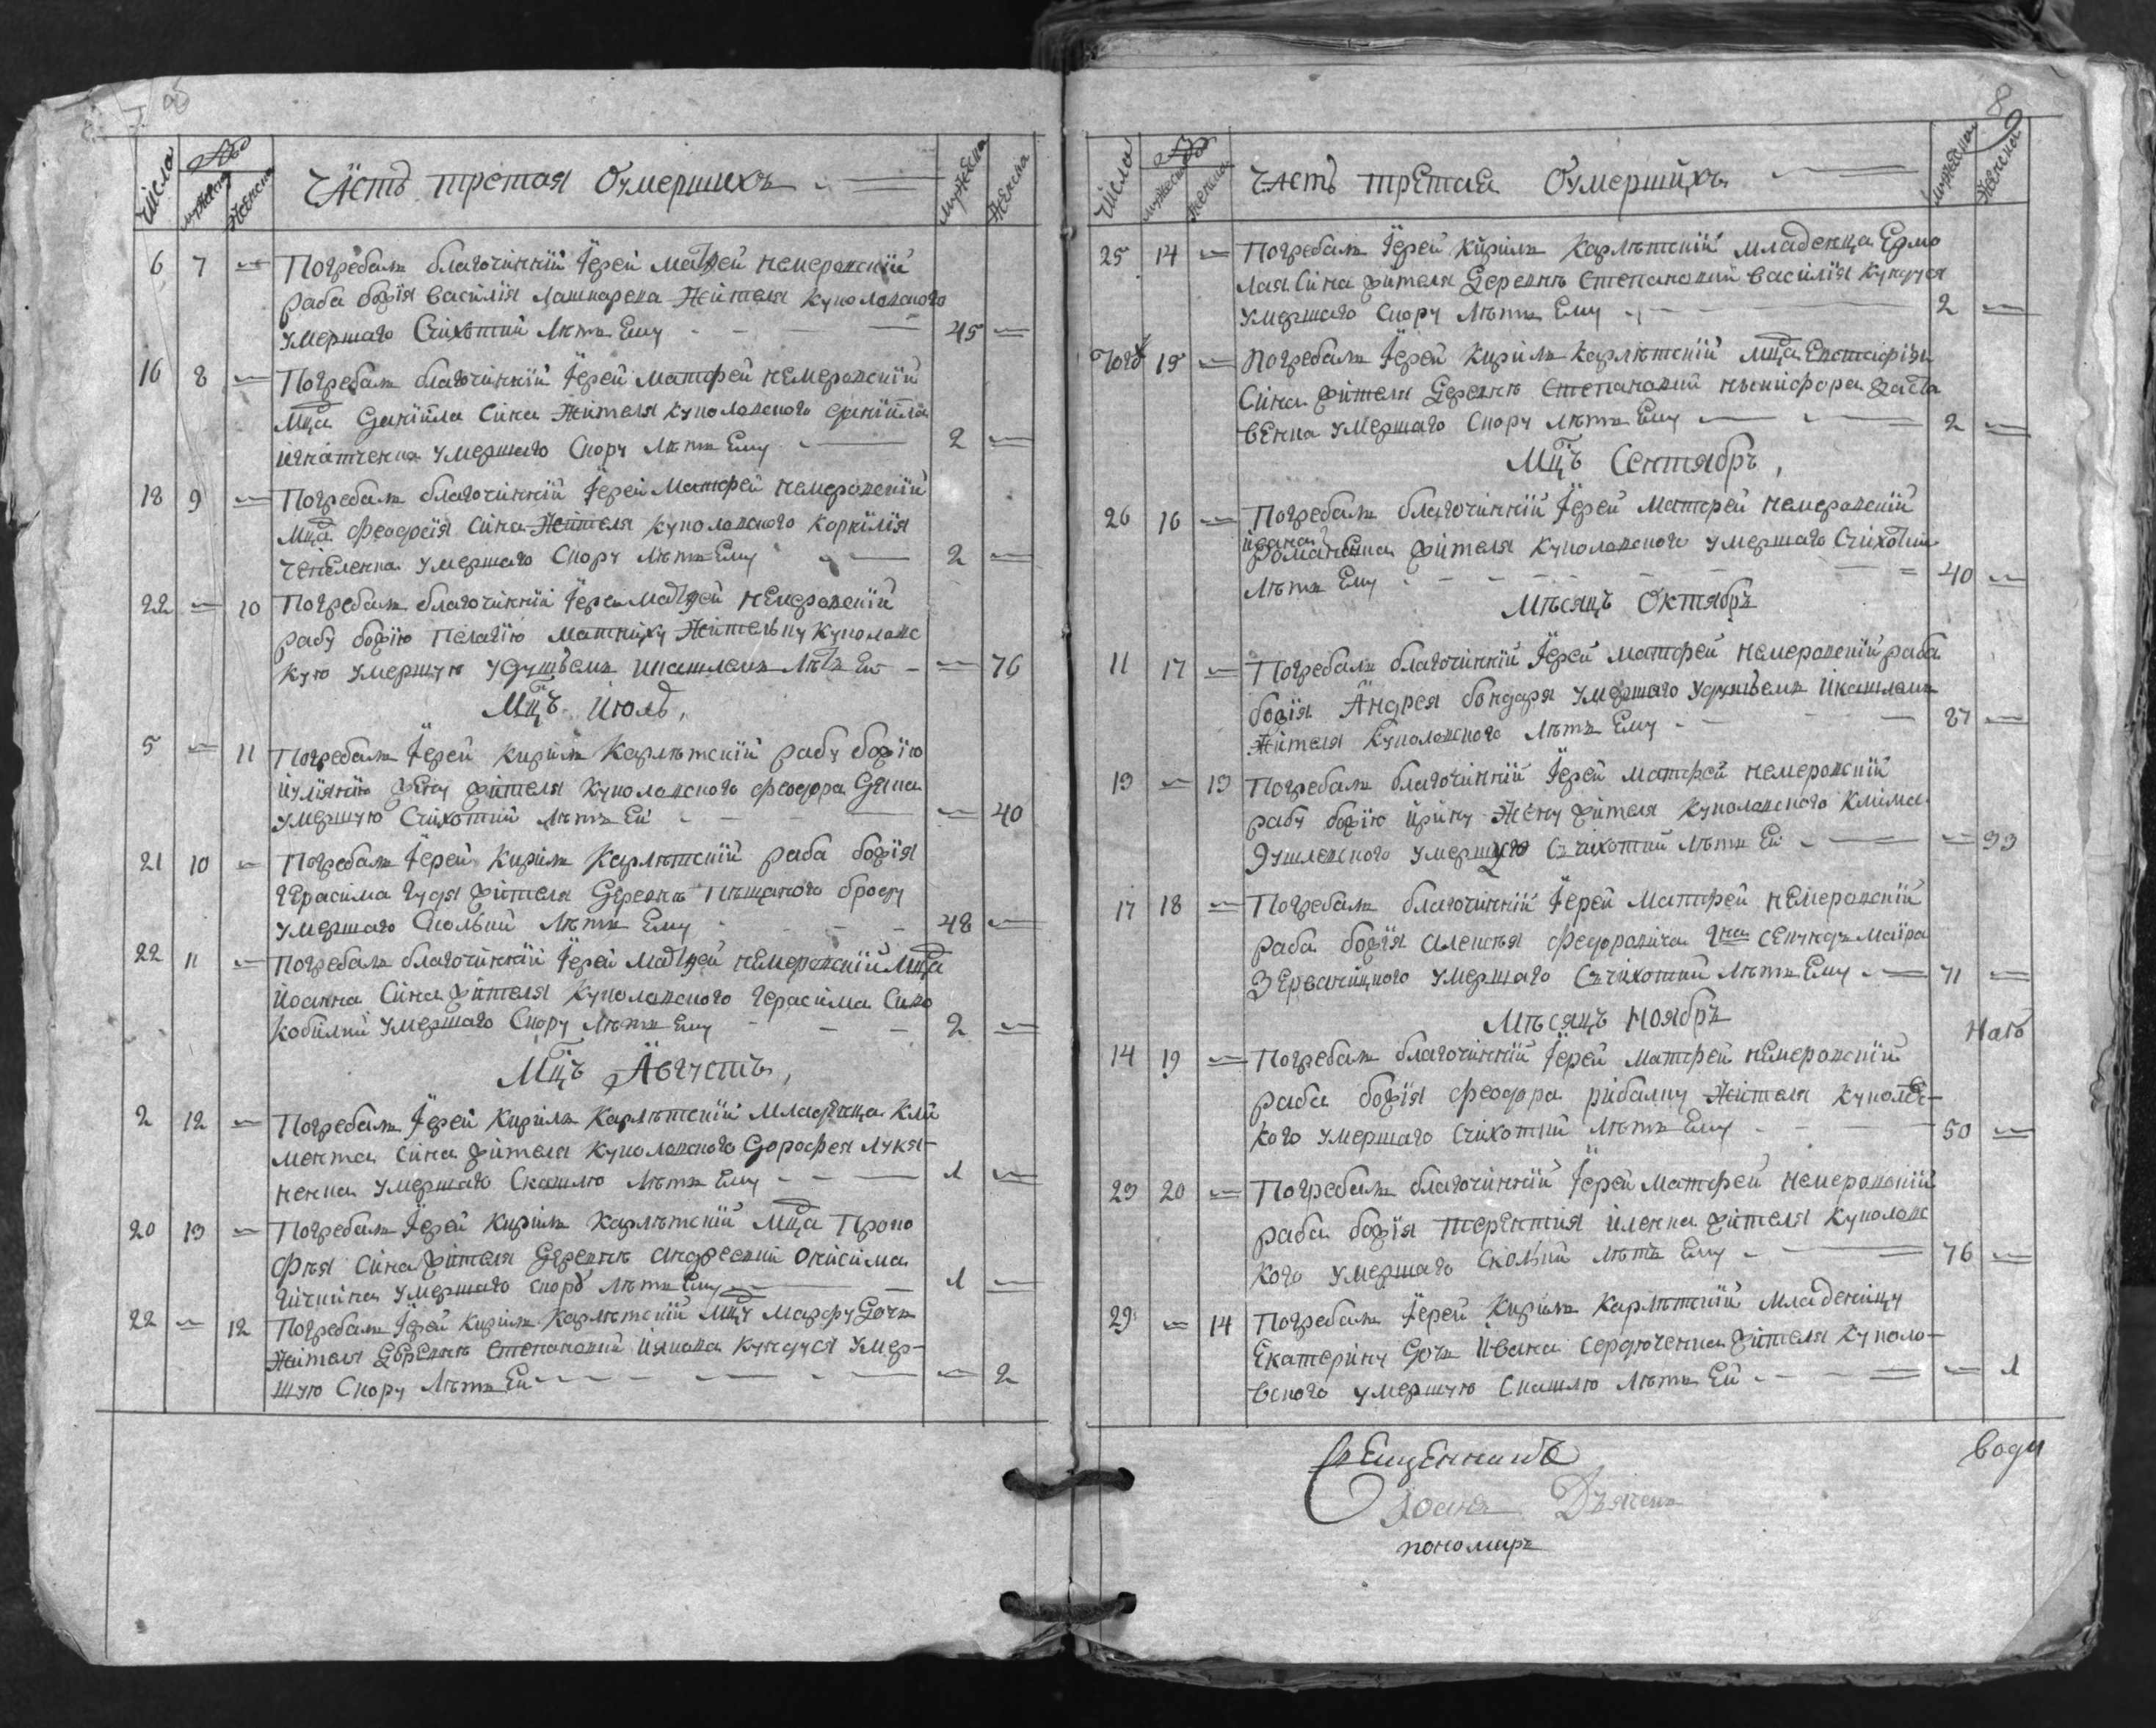 Числа
мужеска
женска
Часть третая Оумершихъ
мужеска
женска
6 7 Погребалъ благочинній Іерей Матфей Немеровскій
раба божія василія лашкарева жителя куполовского
умершаго Счихотки лѣтъ Ему 45
16 8 Погребалъ благочинній Іерей Матфей Немеровскій
мца Даніила Сина жителя куполовского Даніила
игнатченка умершаго Скору лѣтъ Ему 2
18 9 Погребалъ благочинній Іерей Матфей Немеровскій
мца Феодосія Сина жителя куполовского Корнилія
умершаго Скору лѣтъ Ему 2
22 10 Погребалъ благочинній Іерей Матфей Немеровскій
рабу божію Пелагію жительку куполовс
кую умершую удушъемъ икашлемъ лѣтъ Ей 76
Мцъ Июль,
5 11 Погребалъ Іерей Кирилъ Карлѣтскій рабу божію
иулианію жену жителя куполовского Феодора Дяка
умершую Счихотки лѣтъ Ей 40
21 10 Погребалъ Іерей Кирилъ Карлѣтскій раба божія
Герасима жителя Деревнѣ Пѣщаного броду
умершаго Скольки лѣтъ Ему 48
22 11 Погребалъ благочинній Іерей Матфей Немеровскій мца
Иоанна Сина жителя Куполовского Герасима Сиво
кобилки умершаго Скору лѣтъ Ему 2
Мцъ Августъ,
2 12 Погребалъ Іерей Кирилъ Карлѣтскій младенца Кли
мента Сина жителя Куполовского Дорофея лукя-
ненка умершаго Скашлю лѣтъ Ему 1
20 13 Погребалъ Іерей Кирилъ Карлѣтскій мца Проко
фѣя Сина жителя Деревнѣ Андреевки Онисима
умершаго скору лѣтъ Ему 1
22 12 Погребалъ Іерей Кирилъ Карлѣтскій мцу Марфу Дочь
жителя Деревнѣ Степановки Иякова кундуся умер-
шую Скору лѣтъ Ей 2
8
Числа
мужеска
женска
Часть третая Оумершихъ
мужеска
женска
25 14 Погребалъ Іерей Кирилъ Карлѣтскій младенца Ермо
лая Сина жителя Деревнѣ Степановки василія кундуся
умершаго Скору лѣтъ Ему 2
Тогож 15 Погребалъ Іерей Кирилъ Карлѣтскій мца Евстафія
Сина жителя Деревнѣ Степановки никифора
венка умершаго Скору лѣтъ Ему 2
Мцъ Сентябръ,
26 16 Погребалъ благочинній Іерей Матфей Немеровскій
ивана
романенка жителя Куполовского умершаго Счихотки
лѣтъ Ему 40
Мѣсяцъ Октябръ
11 17 Погребалъ благочинній Іерей Матфей Немеровскій раба
божія Андрея бондаря умершаго удушъемъ икашлемъ
жителя Куполовского лѣтъ Ему 87
13 13 Погребалъ благочинній Іерей Матфей Немеровскій
рабу божію ирину жену жителя Куполовского Клима
умершую Счихотки лѣтъ Ей 33
17 18 Погребалъ благочинній Іерей Матфей Немеровскій
раба божія алексѣя Федоровича Гна Секундъ маіора
Зерваницкого умершаго Счихотки лѣтъ Ему 71
Мѣсяцъ Ноябръ
14 19 Погребалъ благочинній Іерей Матфей Немеровскій
раба божія Феодора рибалку жителя куполов-
кого умершаго Счихотки лѣтъ Ему 50
23 20 Погребалъ благочинній Іерей Матфей Немеровскій
раба божія терентія иленка жителя Куполовс
кого умершаго Скольки лѣтъ Ему 76
29 14 Погребалъ Іерей Кирилъ Карлѣтскій младеницу
Екатерину Дочь Ивана сердюченка жителя Куполо-
вского умершую Скашлю лѣтъ Ей 1
Священникъ
Іоанъ
пономаръ
воды